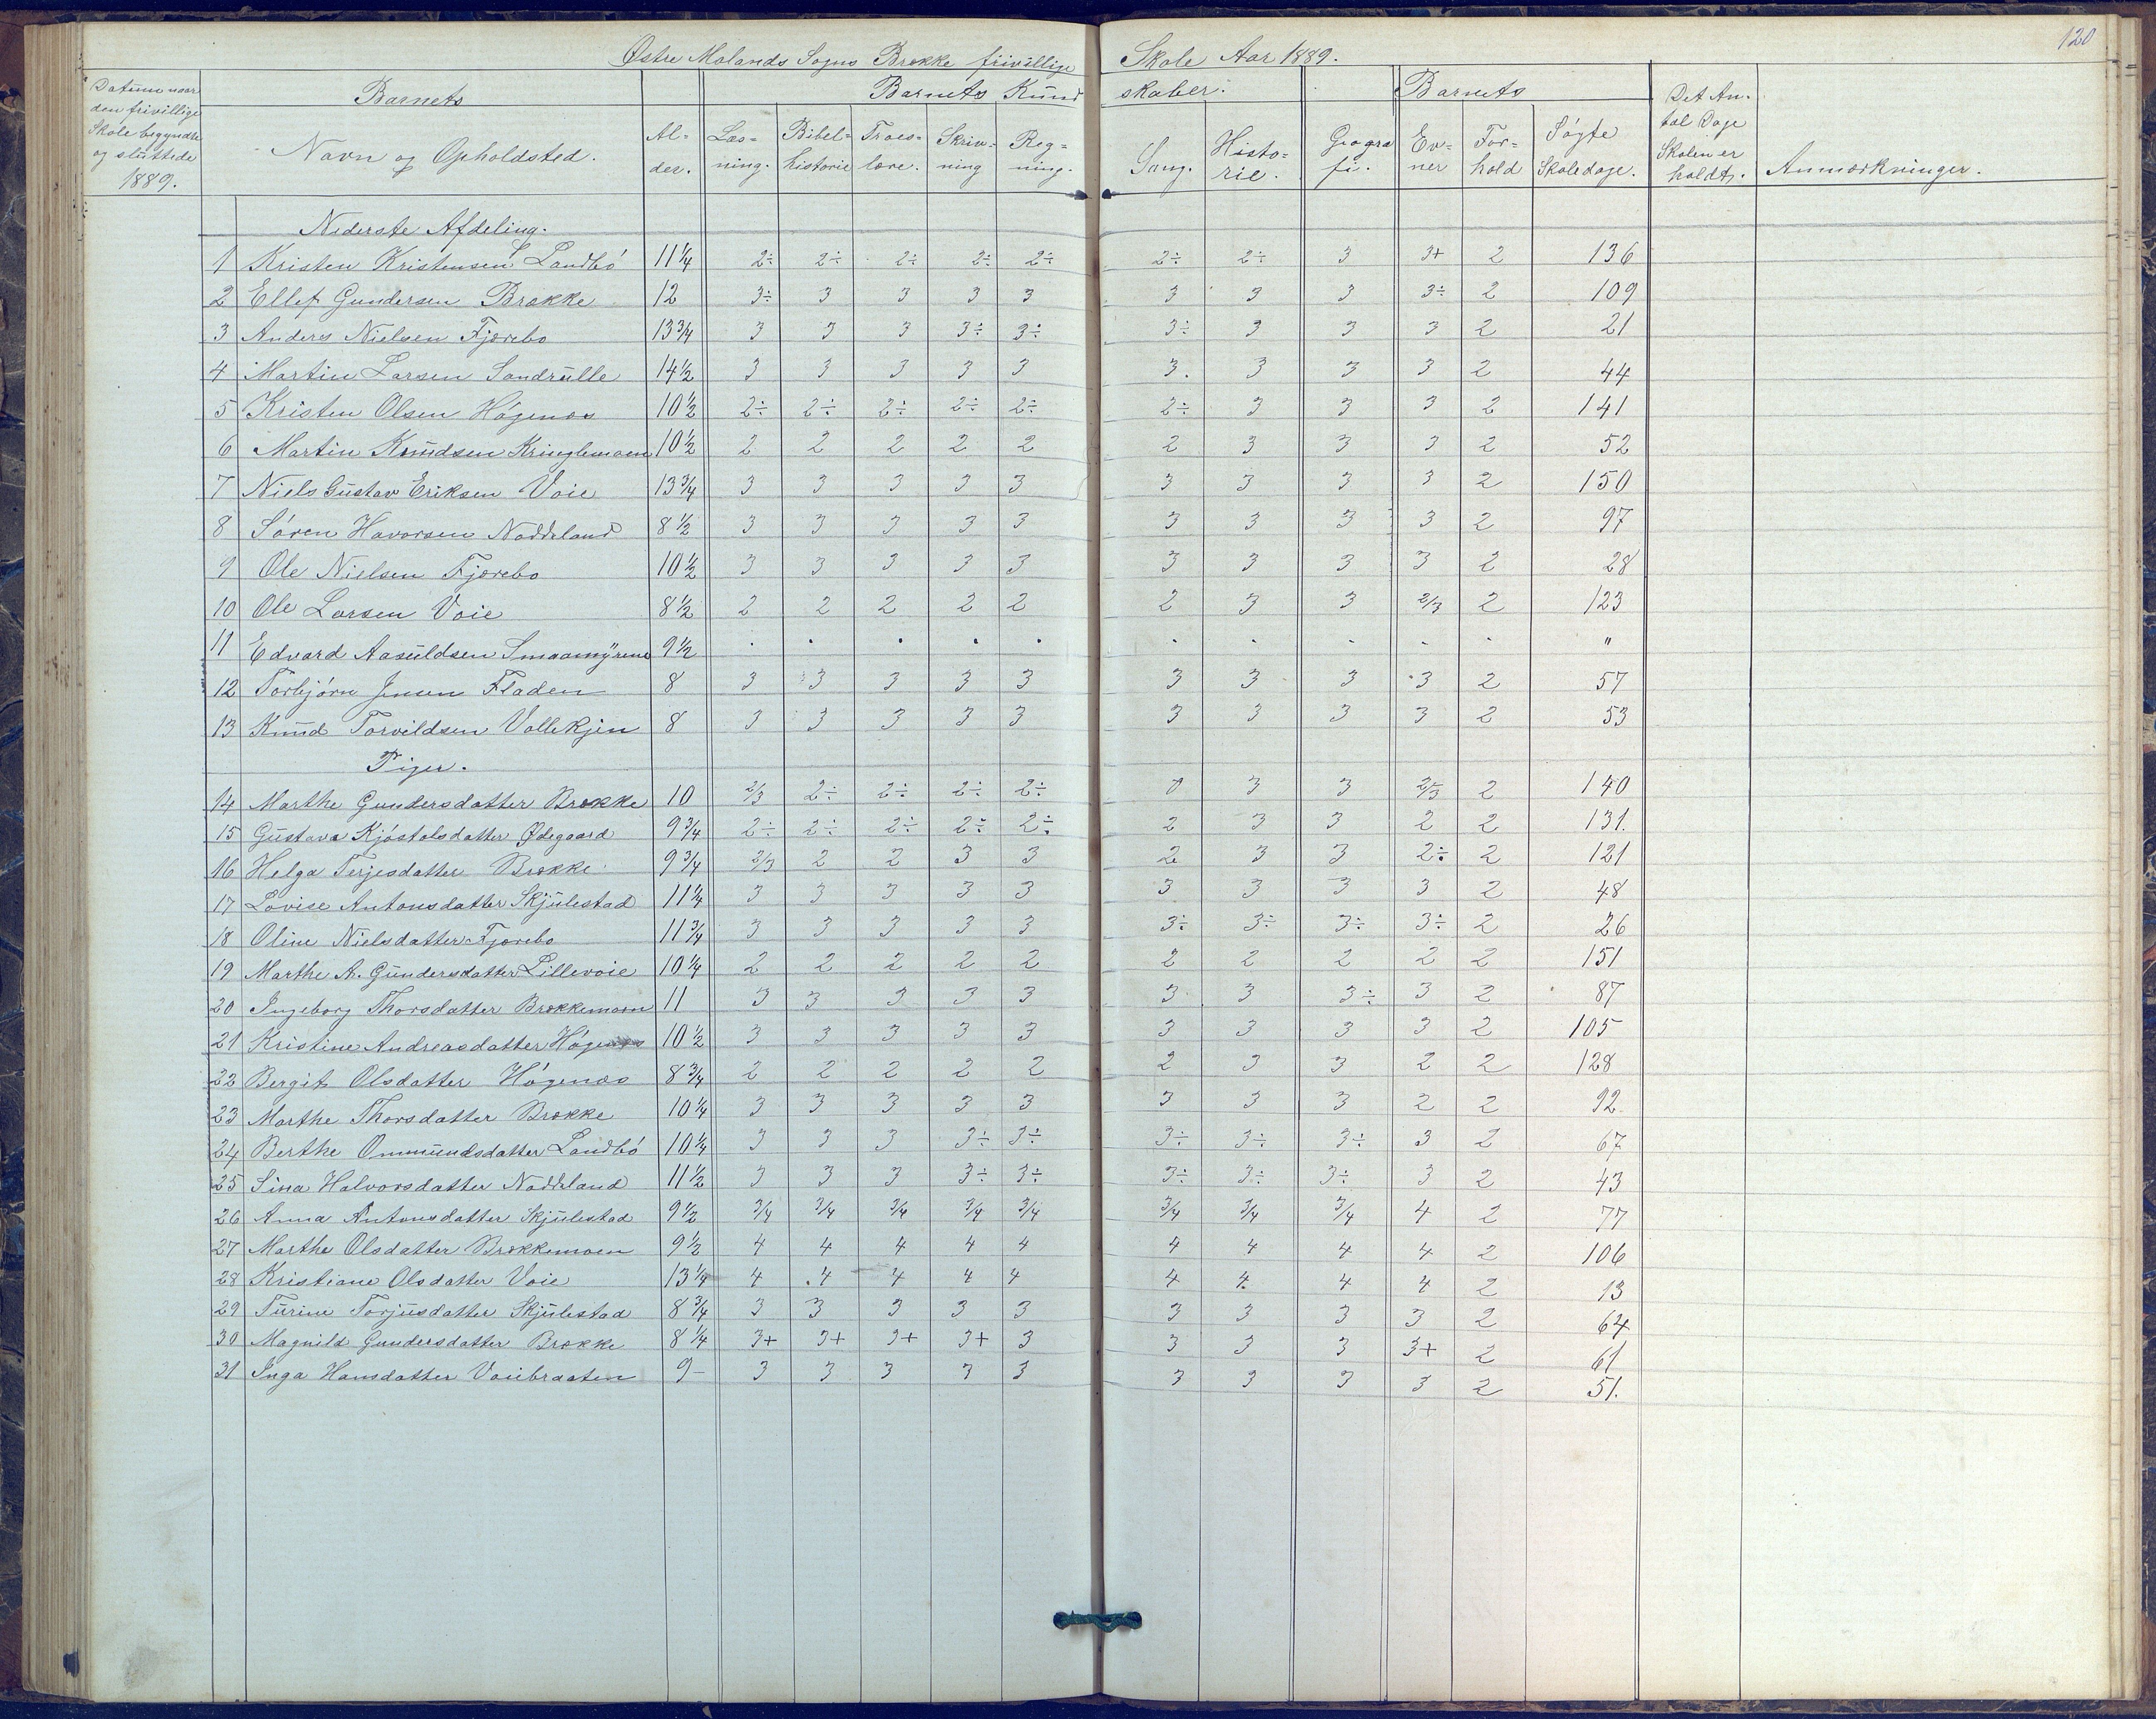 120
Østre Molands Sogns Brække frivillige Skole Aar 1889.
Datum naar den frivillige Skole begyndte og sluttede 1889.
Barnets Navn og Opholdsted.
Al-der.
Barnets Kundskaber.
Læs-ning. Bibel-historie Troes-lære. Skriv-ning Reg-ning. Sang. Histo-rie. Geogra fi.
Barnets
Ev-ner For-hold Søgte Skoledage.
Det An-tal Dage Skolen er holdt.
Anmærkninger.
Nederste Afdeling.
1 Kristen Kristensen Landbø 11 1/4 2÷ 2÷ 2÷ 2÷ 2÷ 2÷ 2÷ 3 3+ 2 136
2 Ellef Gundersen Brække 12 3÷ 3 3 3 3 3 3 3 3÷ 2 109
3 Anders Nielsen Fjærebo 13 3/4 3 3 3 3÷ 3÷ 3÷ 3 3 3 2 21
4 Martin Larsen Sandrulle 14 1/2 3 3 3 3 3 3. 3 3 3 2 44
5 Kristen Olsen Høgenæs 10 1/2 2÷ 2÷ 2÷ 2÷ 2÷ 2÷ 3 3 3 2 141
6 Martin Knudsen Kringlemoen 10 1/2 2 2 2 2 2 2 3 3 3 2 52
7 Niels Gustav Eriksen Voie 13 3/4 3 3 3 3 3 3 3 3 3 2 150
8 Søren Havorsen Nødeland 8 1/2 3 3 3 3 3 3 3 3 3 2 97
9 Ole Nielsen Fjærebo 10 1/2 3 3 3 3 3 3 3 3 3 2 28
10 Ole Larsen Voie 8 1/2 2 2 2 2 2 2 3 3 2/3 2 123
11 Edvard Aasuldsen Smaamyrene 9 1/2 . . . . . . . . . . "
12 Torbjørn Jensen Fladen 8 3 3 3 3 3 3 3 3 3 2 57
13 Knud Torvildsen Vallekjen 8 3 3 3 3 3 3 3 3 3 2 53
Piger.
14 Marthe Gundersdatter Brække 10 2/3 2÷ 2÷ 2÷ 2÷ 0 3 3 2/3 2 140
15 Gustava Kjøstolsdatter Ødegaard 9 3/4 2÷ 2÷ 2÷ 2÷ 2÷ 2 3 3 2 2 131.
16 Helga Terjesdatter Brække 9 3/4 2/3 2 2 3 3 2 3 3 2÷ 2 121
17 Lovise Antonsdatter Skjulestad 11 1/4 3 3 3 3 3 3 3 3 3 2 48
18 Oline Nielsdatter Fjærebo 11 3/4 3 3 3 3 3 3÷ 3÷ 3÷ 3÷ 2 26
19 Marthe A. Gundersdatter Lillevoie 10 1/4 2 2 2 2 2 2 2 2 2 2 151
20 Ingeborg Thorsdatter Brækkemoen 11 3 3 3 3 3 3 3 3÷ 3 2 87
21 Kristine Andreasdatter Høgenæs 10 1/2 3 3 3 3 3 3 3 3 3 2 105
22 Bergit Olsdatter Høgenæs 8 3/4 2 2 2 2 2 2 3 3 2 2 128
23 Marthe Thorsdatter Brække 10 1/4 3 3 3 3 3 3 3 3 2 2 92.
24 Berthe Ommundsdatter Landbø 10 1/4 3 3 3 3÷ 3÷ 3÷ 3÷ 3÷ 3 2 67
25 Sina Halvorsdatter Nødeland 11 1/2 3 3 3 3÷ 3÷ 3÷ 3÷ 3÷ 3 2 43
26 Anna Antonsdatter Skjulestad 9 1/2 3/4 3/4 3/4 3/4 3/4 3/4 3/4 3/4 4 2 77
27 Marthe Olsdatter Brækkemoen 9 1/2 4 4 4 4 4 4 4 4 4 2 106
28 Kristiane Olsdatter Voie 13 1/4 4 4 4 4 4 4 4 4 4 2 13
29 Turine Torjusdatter Skjulestad 8 3/4 3 3 3 3 3 3 3 3 3 2 64
30 Magnild Gundersdatter Brække 8 1/4 3+ 3+ 3+ 3+ 3 3 3 3 3+ 2 61
31 Inga Hansdatter Voiebraaten 9 – 3 3 3 3 3 3 3 3 3 2 51.